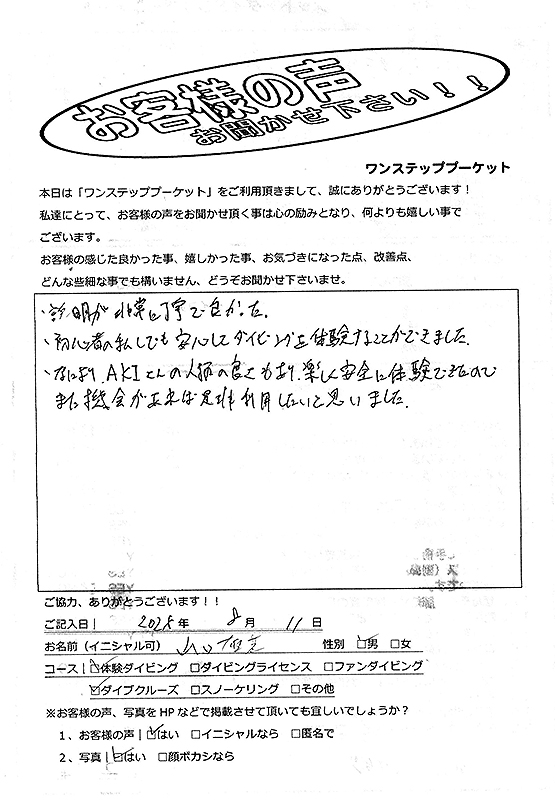 お客様の声
お聞かせ下さい！！
ワンステッププーケット
本日は「ワンステッププーケット」をご利用頂きまして、誠にありがとうございます！
私達にとって、お客様の声をお聞かせ頂く事は心の励みとなり、何よりも嬉しい事で
ございます。
お客様の感じた良かった事、嬉しかった事、お気づきになった点、改善点、
どんな些細な事でも構いません、どうぞお聞かせ下さいませ。
・説明が非常に丁寧で良かった。
・初心者の私しでも安心してダイビングを体験することができました。
・なにより、AKIさんの人柄の良さもあり、楽しく安全に体験できたので
また機会が出来れば是非利用したいと思いました。
ご協力、ありがとうございます！！
ご記入日｜ 2025年 8月 11日
お名前（イニシャル可） 性別 ☑男 □女
コース｜☑体験ダイビング □ダイビングライセンス □ファンダイビング
☑ダイブクルーズ □スノーケリング □その他
※お客様の声、写真を HP などで掲載させて頂いても宜しいでしょうか？
1、お客様の声｜☑はい □イニシャルなら □匿名で
2、写真｜☑はい □顔ボカシなら